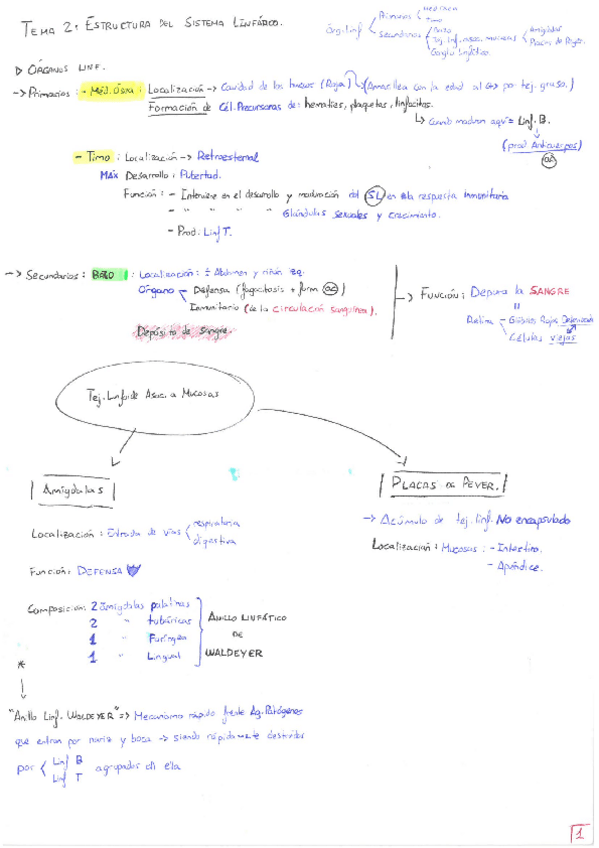 TEMA 2: ESTRUCTURA DEL SISTEMA LINFÁTICO.
Órg. linf
Primarios
Médula
Timo
Secundarios
Bazo
Tej. linf. asoc. mucosas
Amígdalas
Placas de Peyer.
Ganglio linfático
ÓRGANOS LINF.
-> Primarios: - Méd. Ósea: Localización -> Cavidad de los huesos (Roja) (Amarillea con la edad al por tej. graso.)
Formación de Cél. Precursoras de: hematíes, plaquetas, linfocitos.
Cuando maduran aquí = Linf B.
(prod. Anticuerpos)
ac
- Timo: Localización -> Retroesternal
MÁX Desarrollo: Pubertad.
Función: - Interviene en el desarrollo y maduración del SL en la respuesta inmunitaria
- " " " " Glándulas sexuales y crecimiento.
- Prod. Linf T.
-> Secundarios: BAZO: Localización: ÷ Abdomen y riñón izq.
Órgano
Defensa (fagocitosis + form ac)
Inmunitario (de la circulación sanguínea).
Depósito de Sangre.
-> FUNCIÓN: Depura la SANGRE
=
Retira
- Glóbulos Rojos Deteriorados
- Células viejas
Tej. Linfoide Asoc. a Mucosas
Amígdalas
Localización: Entrada de vías
respiratoria
digestiva
Función: DEFENSA
Composición: 2 amígdalas palatinas
2 " tubáricas
1 " Faríngea
1 " Lingual
ANILLO LINFÁTICO
DE
WALDEYER
PLACAS DE PEYER.
-> Acúmulo de tej. linf. No encapsulado
Localización: Mucosas: - Intestino.
- Apéndice.
*
"Anillo Linf. WALDEYER" => Mecanismo rápido frente Ag. Patógenos
que entran por nariz y boca -> siendo rápidamente destruidos
por
Linf B
Linf T
agrupados en ella
1